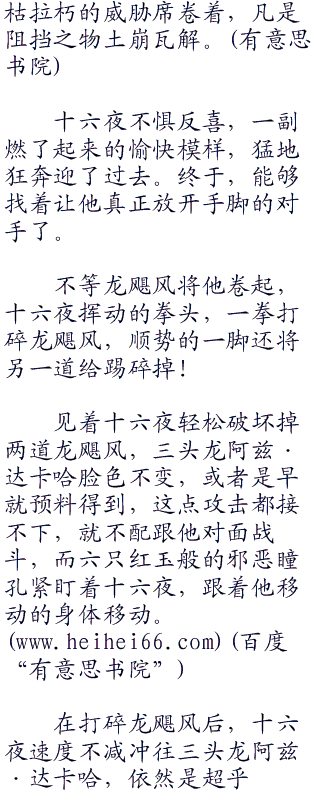 枯拉朽的威胁席卷着，凡是
阻挡之物土崩瓦解。(有意思
书院)
十六夜不惧反喜，一副
燃了起来的愉快模样，猛地
狂奔迎了过去。终于，能够
找着让他真正放开手脚的对
手了。
不等龙飓风将他卷起，
十六夜挥动的拳头，一拳打
碎龙飓风，顺势的一脚还将
另一道给踢碎掉！
见着十六夜轻松破坏掉
两道龙飓风，三头龙阿兹·
达卡哈脸色不变，或者是早
就预料得到，这点攻击都接
不下，就不配跟他对面战
斗，而六只红玉般的邪恶瞳
孔紧盯着十六夜，跟着他移
动的身体移动。
(www.heihei66.com)(百度
“有意思书院”)
在打碎龙飓风后，十六
夜速度不减冲往三头龙阿兹
·达卡哈，依然是超乎